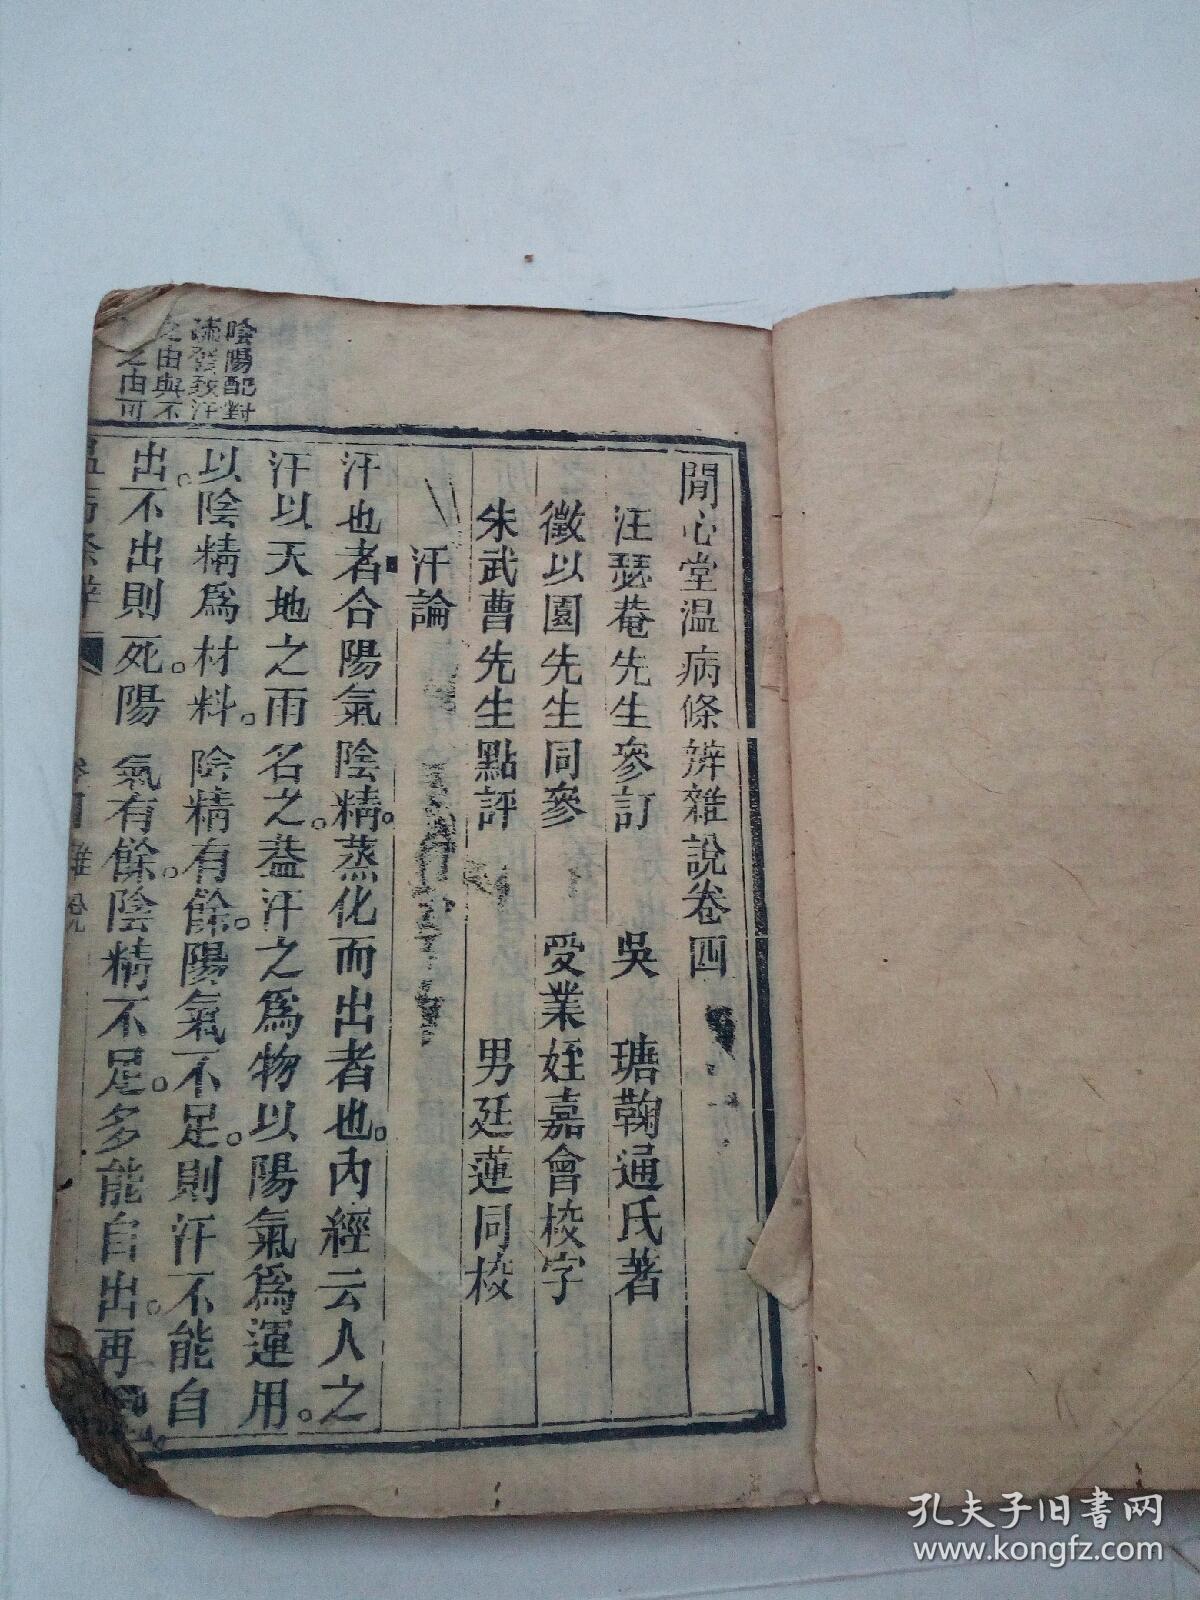 閒心堂温病條辨雜說卷四
汪瑟菴先生參訂 吳 瑭鞠通氏著
徵以園先生同參 受業姪嘉會校字
朱武曹先生點評 男廷蓮同校
汗論
汗也者合陽氣陰精。蒸化而出者也。內經云人之
汗以天地之雨名之。葢汗之爲物以陽氣爲運用。
以陰精爲材料。陰精有餘。陽氣不足。則汗不能自
出。不出則死。陽氣有餘。陰精不足。多能自出。再
陰陽配對
發致汗
之由與不
之由可
雜說
孔夫子旧书网
www.kongfz.com